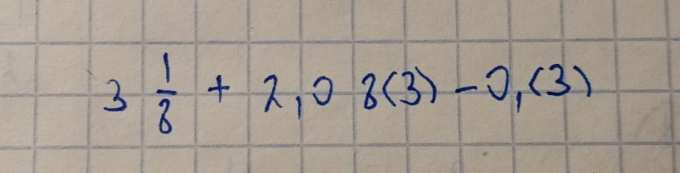 3 1/8 + 2,08(3) - 0,(3)